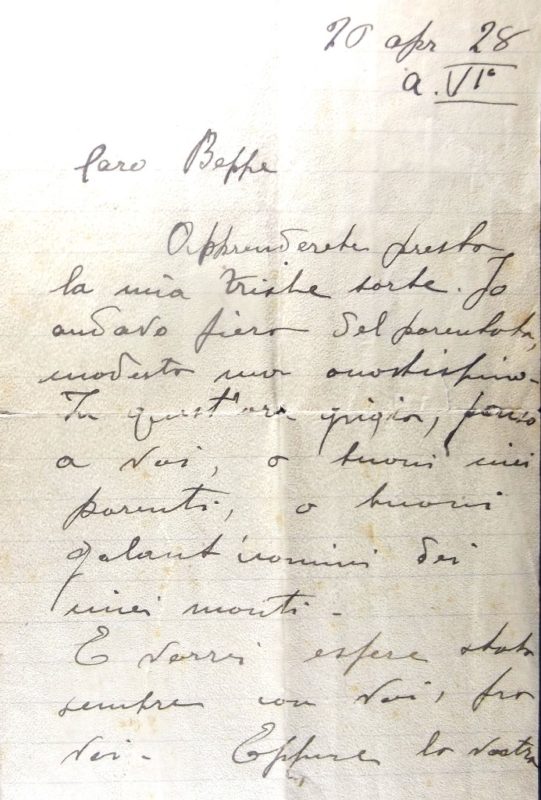 20 apr 28
a. VI°
Caro Beppe
Apprenderete presto
la mia triste sorte. Io
andavo fiero del parentato,
modesto ma onestissimo.
In quest'ora grigia, penso
a voi, o buoni miei
parenti, o buoni
galant'uomini dei
miei monti.
E vorrei essere stato
sempre con voi, fra
voi. Eppure la vostra